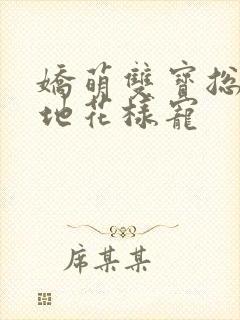 嬌萌雙寶總
地花樣寵
席某某